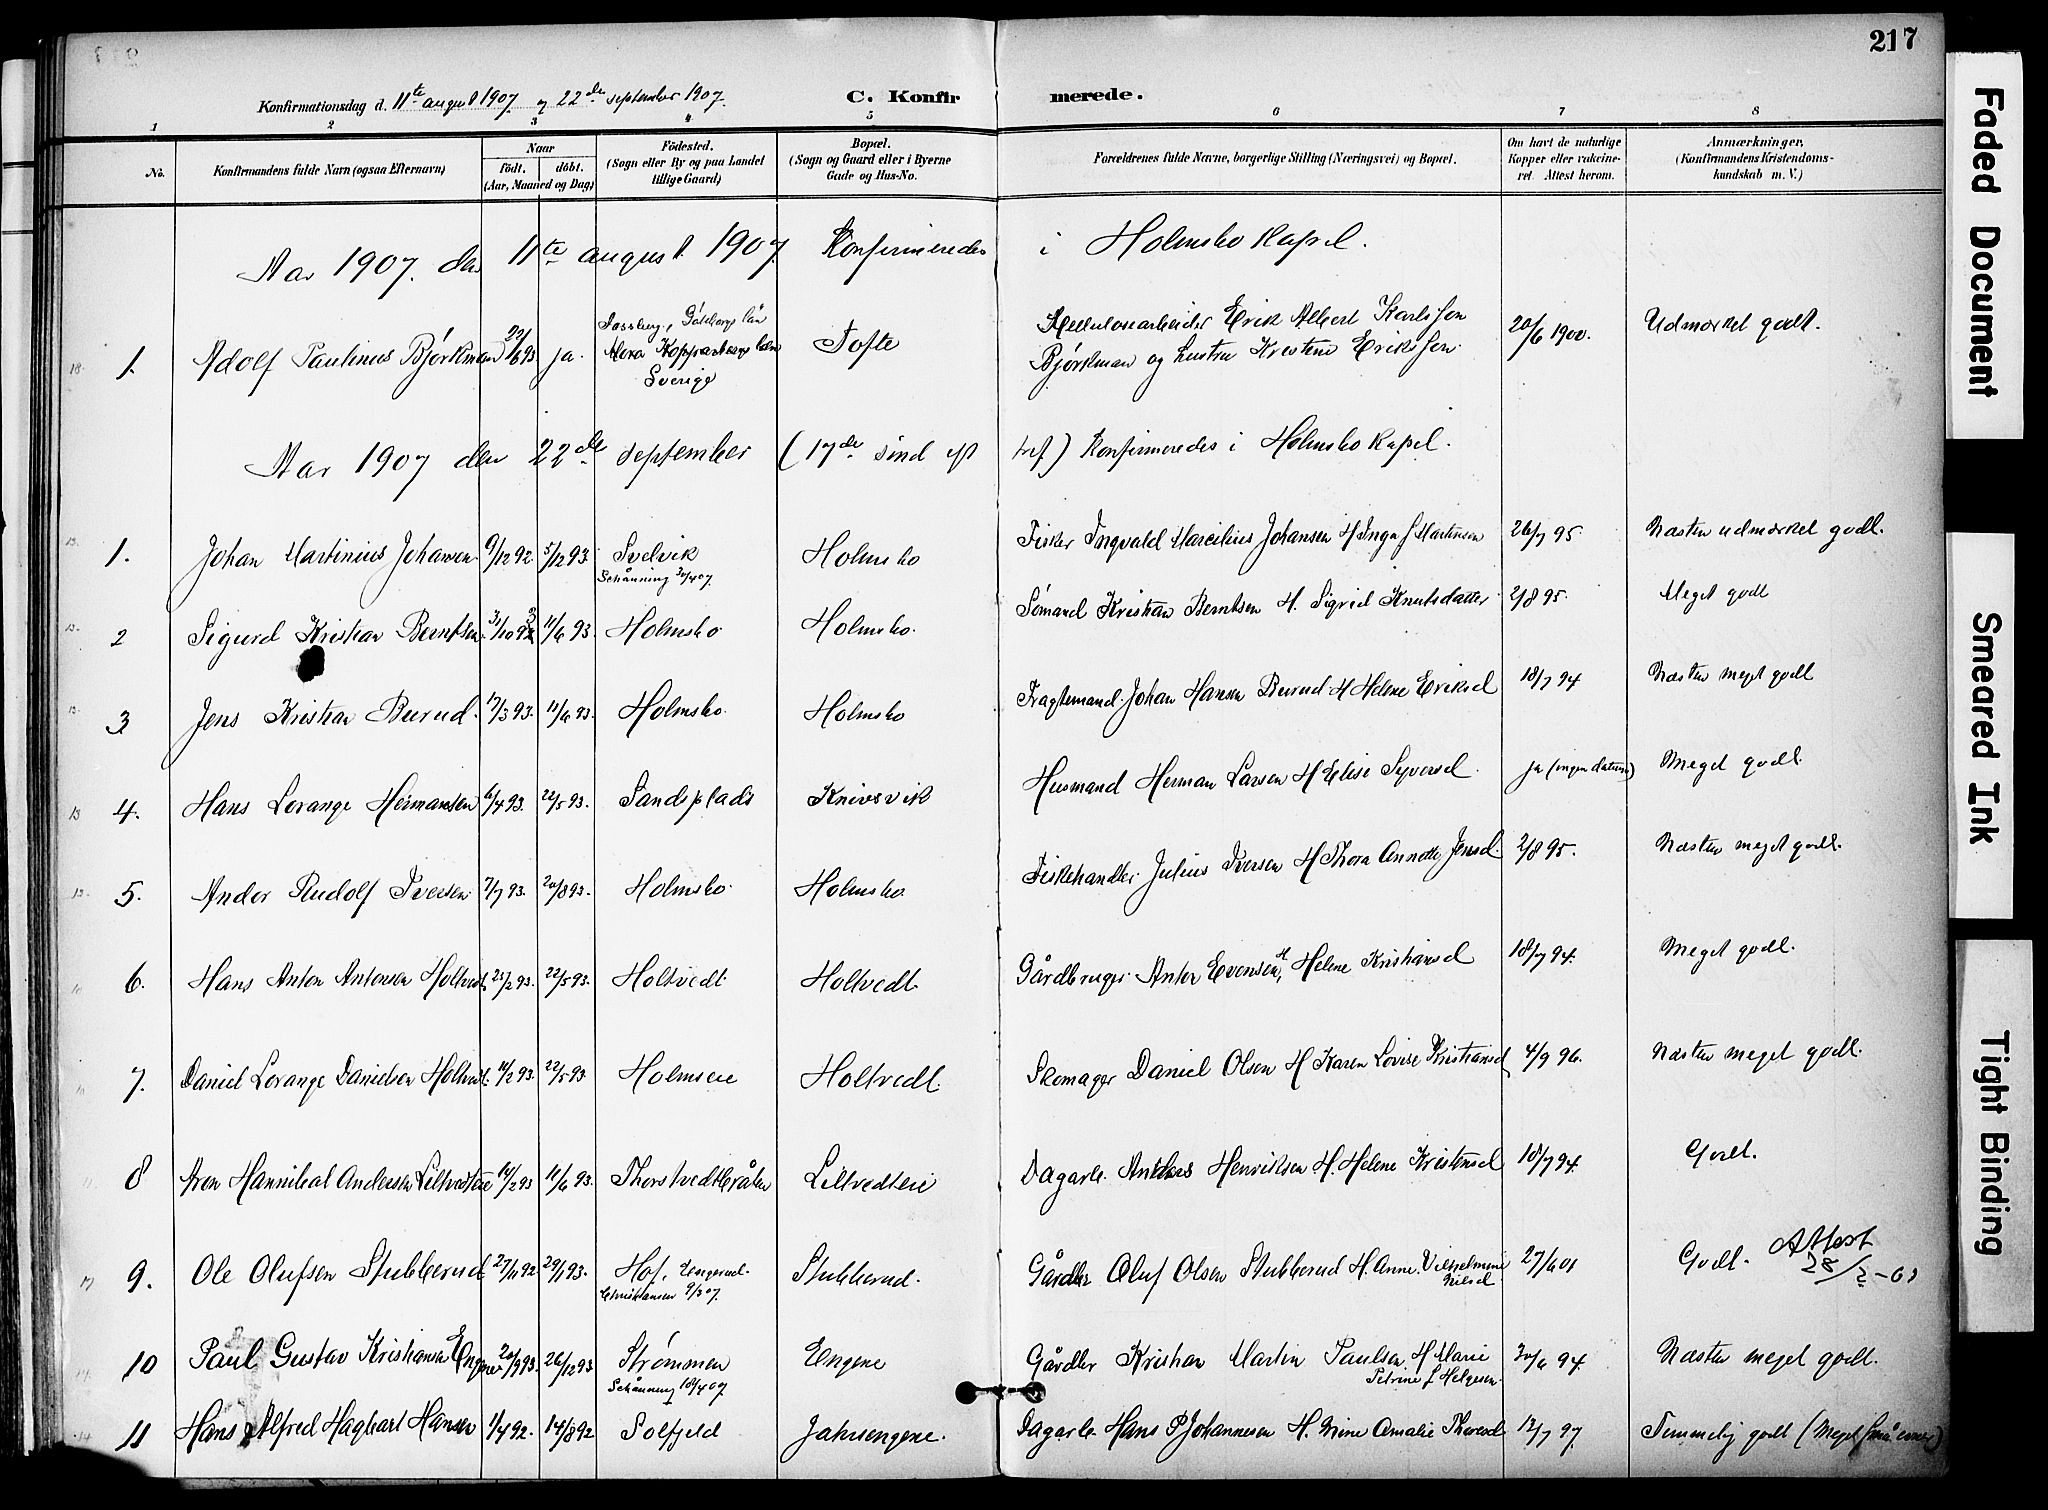 217
Konfirmationsdag d. 11te august 1907 og 22de september 1907. C. Konfir merede.
1 2 3 4 5 6 7 8
No. Konfirmandens fulde Navn (ogsaa Efternavn) Naar födt. döbt. (Aar, Maaned og Dag) Födested. (Sogn eller By og paa Landet tillige Gaard) Bopæl. (Sogn og Gaard eller i Byerne Gade og Hus-No. Forældrenes fulde Navne, borgerlige Stilling (Næringsvei) og Bopæl. Om havt de naturlige Kopper eller vaccineret. Attest herom. Anmærkninger, (Konfirmandens Kristendomskundskab m. V.)
Aar 1907. den 11te august. 1907. Konfirmeredes i Holmsbo Kapel.
1. Adolf Paulinus Björkman 22/6 93 ja. Göteborgs län Kopparbergs län Sverige Tofte Cellulosearbeider Erik Albert Karlsson Björkman og hustru Kristine Eriksson. 20/6 1900. Udmærket godt.
Aar 1907 den 22de september (17de sönd eft tref) Konfirmeredes i Holmsbo Kapel.
1. Johan Martinius Johansen 9/12 92. 5/12 93. Svelvik Schånning 30/4 07. Holmsbo Fisker Ingvald Marcilius Johansen H Inga f Martinsen 26/7 95. Næsten udmærket godt.
2 Sigurd Kristian Berntsen. 31/10 92 11/6 93. Holmsbo Holmsbo. Sömand Kristian Berntsen H. Sigrid Knutsdatter 2/8 95. Meget godt
3 Jens Kristian Burud. 17/3 93. 11/6 93. Holmsbo Holmsbo Fragtemand. Johan Hansen Burud H Helene Eriksd 18/7 94 Næsten meget godt
4. Hans Lorange Hermansen 6/4 93. 22/5 93. Sandsplads Knivsvik Husmand Herman Larsen H Elise Syversd. ja (ingen datum) Meget godt.
5. Andor Rudolf Iversen 7/7 93. 20/8 93. Holmsbo. Holmsbo. Fiskehandler. Julius Iversen H Thora Annette Jensd. 2/8 95. Næsten meget godt.
6. Hans Anton Antonsen Holtvedt 23/2 93. 22/5 93. Holtvedt. Holtvedt. Gårdbruger. Anton Evensen, H Helene Kristiansd 18/7 94. Meget godt.
7. Daniel Lorange Danielsen Holtvedt. 11/2 93. 22/5 93. Holmseie Holtvedt. Skomager Daniel Olsen H Karen Lovise Kristiansd 4/9 96. Næsten meget godt.
8 Aron Hannibal Andersen Liltvedteie 14/2 93 11/6 93. Thorstvedtbråten Liltvedteie Dagarb. Anders Henriksen H. Helene Kristensd 18/7 94. Godt.
9. Ole Olufsen Stubberud 27/11 92. 29/1 93. Hof, Engerud. Christiansen 2/3 07. Stubberud. Gårdbr Oluf Olsen Stubberud H. Anne Vilhelmine Nilsd. 27/6 01 Godt. Attest 28/2 -61
10 Paul Gustav Kristiansen Engene 20/9 93. 26/12 93. Strømmen Schånning 18/4 07. Engene Gårdbr Kristian Martin Paulsen. H Marie Petrine f Helgesen. 30/6 94. Næsten meget godt.
11 Hans Alfred Hagbart Hansen 1/4 92. 14/8 92 Solfjeld Jahrsengene. Dagarb. Hans P Johannesen H. Mine Amalie Thoresd 12/7 97. Temmelig godt (Meget små evner)
Faded Document
Smeared Ink
Tight Binding